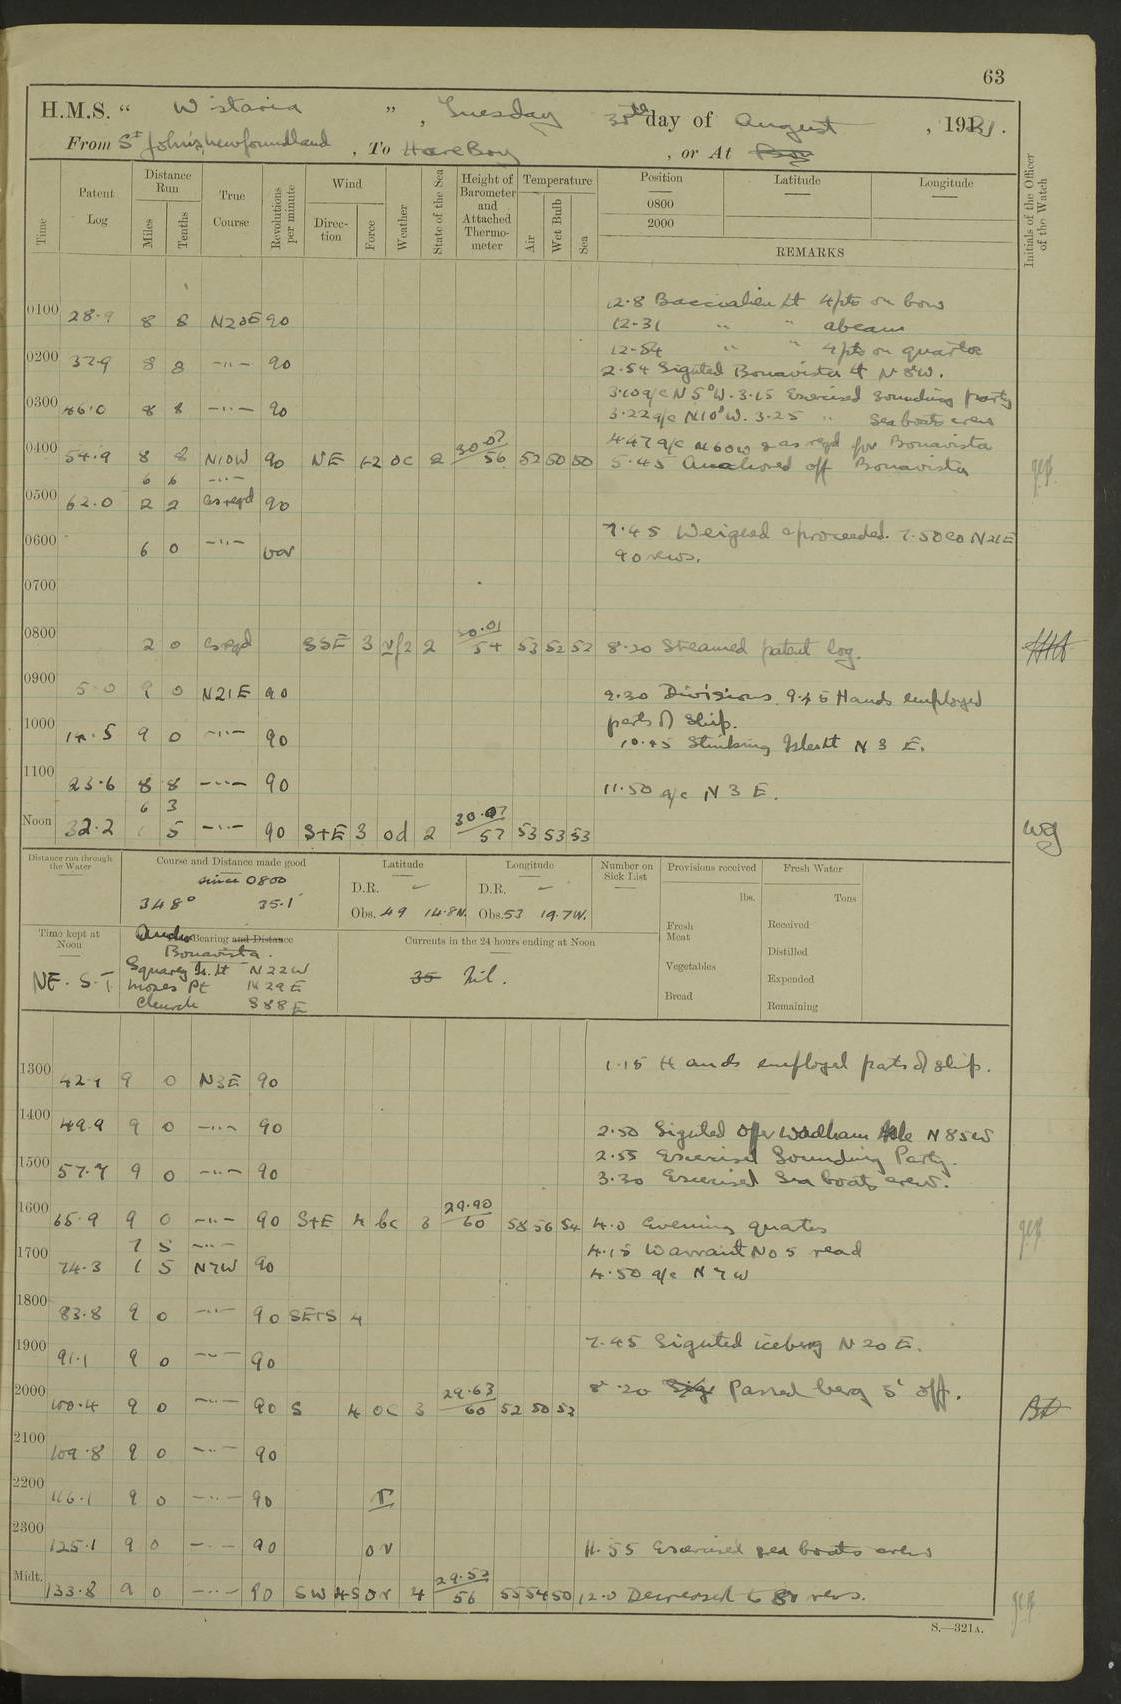 63
H.M.S. “ Wistaria ” , Tuesday 30th day of August , 1921 .
From St John's, Newfoundland , To Hare Bay , or At
Time
Patent Log
Distance Run
Miles
Tenths
True Course
Revolutions per minute
Wind
Direction
Force
Weather
State of the Sea
Height of Barometer and Attached Thermometer
Temperature
Air
Wet Bulb
Sea
Position
0800
2000
Latitude
Longitude
REMARKS
Initials of the Officer of the Watch
12.8 Baccalieu Lt 4 pts on bow
0100 28.9 8 8 N20E 90
12-31 " " abeam
12-54 " " 4 pts on quarter
0200 37.9 8 8 -"- 90
2.54 Sighted Bonavista Lt N 8 W.
3.10 a/c N 5° W. 3.15 Exercised Sounding party
0300 46.0 8 8 -"- 90
3.22 a/c N10°W. 3.25 " Sea boats crews
4.47 a/c N60W & as reqd for Bonavista
0400 54.9 8 8 N10W 90 NE 1-2 oc 2 30.07/56 52 50 50
5.45 Anchored off Bonavista
6 6 -"-
0500 62.0 2 2 as reqd 90
0600 6 0 -"- var
7.45 Weighed & proceeded. 7.50 Co N21E
90 revs.
0700
0800 2 0 as reqd SSE 3 2 30.01/54 53 52 52
8.20 Streamed patent log.
0900 5.0 9 0 N21E 90
9.30 Divisions. 9.45 Hands employed
parts of Ship.
1000 14.5 9 0 -"- 90
10.45 Stinking Isles Lt N 3 E.
1100 23.6 8 8 -"- 90
11.50 a/c N 3 E.
6 3
Noon 32.2 5 -"- 90 S+E 3 od 2 30.07/57 53 53 53
Distance run through the Water
Course and Distance made good
since 0800
348° 35.1
Latitude
D.R. -
Obs. 49 14.8N.
Longitude
D.R. -
Obs. 53 19.7W.
Number on Sick List
Provisions received
lbs.
Fresh Meat
Vegetables
Bread
Fresh Water
Tons
Received
Distilled
Expended
Remaining
Time kept at Noon
NF. S.T
Bearing and Distance
Bonavista.
Squarey Is. Lt N22W
Moses Pt N29E
Church S88E
Currents in the 24 hours ending at Noon
35 Nil.
1.15 Hands employed parts of ship.
1300 42.1 9 0 N3E 90
1400 49.9 9 0 -"- 90
2.50 Sighted Offer Wadham Isle N85W
2.55 Exercised Sounding Party.
1500 57.7 9 0 -"- 90
3.30 Exercised Sea boats crew.
1600 65.9 9 0 -"- 90 S+E 4 bc 3 29.90/60 58 56 54
4.0 Evening quarters
7 5 -"-
4.15 Warrant No 5 read
1700 74.3 1 5 N7W 90
4.50 a/c N 7 W
1800 83.8 9 0 -"- 90 SE+S 4
7.45 Sighted iceberg N 20 E.
1900 91.1 9 0 -"- 90
8.20 Passed berg 5' off.
2000 100.4 9 0 -"- 90 S 4 oc 3 29.63/60 52 50 53
2100 109.8 9 0 -"- 90
2200 116.1 9 0 -"- 90 r
2300 125.1 9 0 -"- 90 or
11.55 Exercised sea boats crew
Midt. 133.8 9 0 -"- 90 SW 4-5 or 4 29.52/56 55 54 50
12.0 Decreased to 80 revs.
S.—321A.